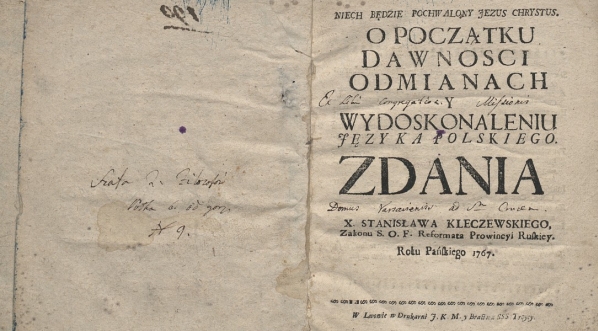 199
Szafa 2. Filozofii
Półka a. od gory
N 9.
NIECH BĘDZIE POCHWALONY JEZUS CHRYSTUS.
O POCZĄTKU
DAWNOSCI
ODMIANACH
Ex Lib. Congregatio. Missionis
Y
WYDOSKONALENIU
JĘZYKA POLSKIEGO.
ZDANIA
Domus Varsaviensis ad S. Crucem
X. STANISŁAWA KLECZEWSKIEGO,
Zakonu S. O. F. Reformata Prowincyi Ruskiey.
Roku Pańskiego 1767.
W Lwowie w Drukarni J. K. M. y Bractwa SSS Troycy.